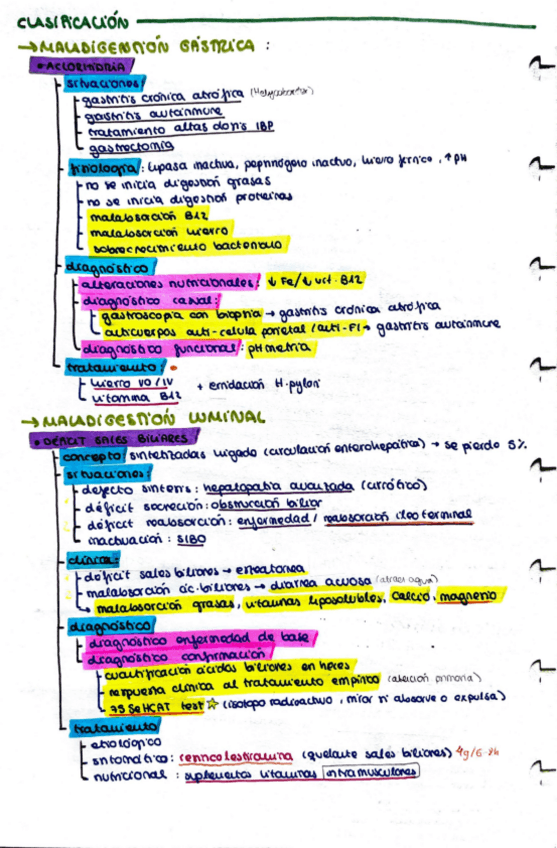 CLASIFICACIÓN
→MALADIGESTIÓN GÁSTRICA :
• ACLORHIDRIA
situaciones:
gastritis crónica atrófica (Helycobacter)
gastritis autoinmune
tratamiento altas dosis IBP
gastrectomía
fisiología: lipasa inactiva, pepsinógeno inactivo, hierro férrico, ↑ pH
no se inicia digestión grasas
no se inicia digestión proteínas
malabsorción B12
malabsorción hierro
sobrecrecimiento bacteriano
diagnóstico
alteraciones nutricionales: ↓ Fe/↓ vit. B12
diagnóstico causal:
gastroscopia con biopsia → gastritis crónica atrófica
anticuerpos anti-celula parietal /anti-FI → gastritis autoinmune
diagnóstico funcional: pHmetría
tratamiento:
hierro VO/IV + erradicación H.pylori
vitamina B12
→MALADIGESTIÓN LUMINAL
• DÉFICIT SALES BILIARES/
concepto sintetizadas hígado (circulación enterohepática) → se pierde 5%
situaciones:
defecto síntesis: hepatopatía avanzada (cirrótico)
déficit secreción: obstrucción biliar
déficit reabsorción: enfermedad / reabsorción íleo terminal
inactivación: SIBO
clínica:
déficit sales biliares → esteatorrea
malabsorción ác. biliares → diarrea acuosa (atraen agua)
malabsorción grasas, vitaminas liposolubles, calcio, magnesio
diagnóstico
diagnóstico enfermedad de base
diagnóstico confirmación
cuantificación ácidos biliares en heces
respuesta clínica al tratamiento empírico (atención primaria)
75 SeHCAT test ☆ (isótopo radioactivo, mirar si absorve o expulsa)
tratamiento
etiológico
sintomático: resincolestiramina (quelante sales biliares) 4g/6-8h
nutricional: suplementos vitaminas intramusculares